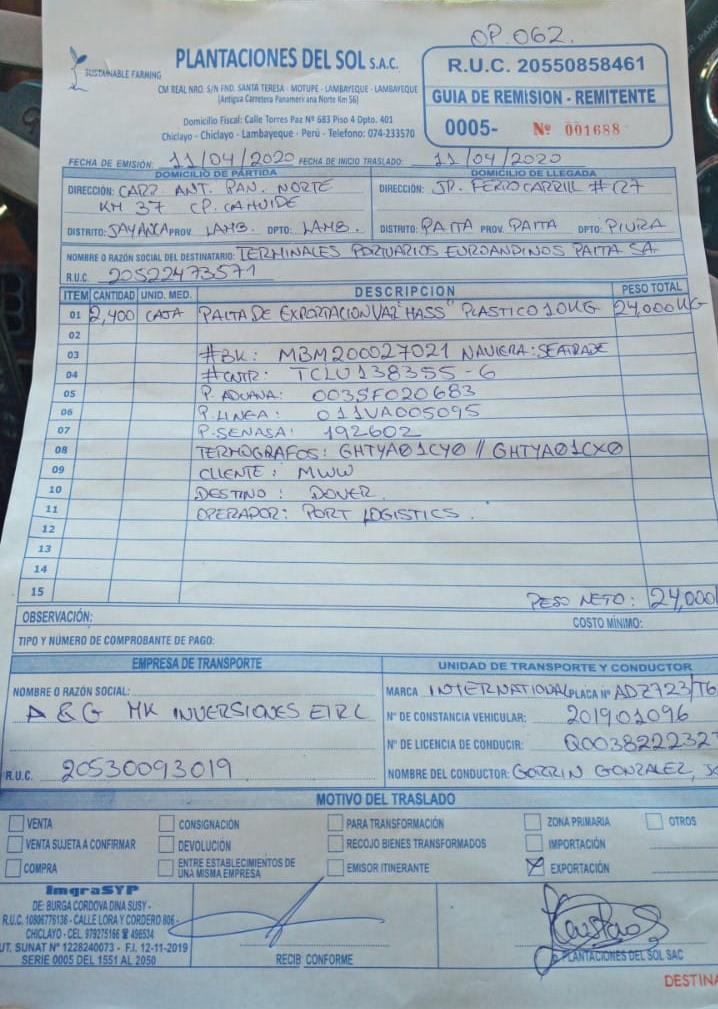 OP. 062.
SUSTAINABLE FARMING
PLANTACIONES DEL SOL S.A.C.
CM REAL NRO. S/N FND. SANTA TERESA - MOTUPE - LAMBAYEQUE - LAMBAYEQUE
(Antigua Carretera Panamericana Norte Km 56)
Domicilio Fiscal: Calle Torres Paz Nº 683 Piso 4 Dpto. 401
Chiclayo - Chiclayo - Lambayeque - Perú - Telefono: 074-233570
R.U.C. 20550858461
GUIA DE REMISION - REMITENTE
0005- Nº 001688
FECHA DE EMISIÓN: 11/04/2020 FECHA DE INICIO TRASLADO: 11/04/2020
DOMICILIO DE PARTIDA
DIRECCIÓN: CARR. ANT. PAN. NORTE
KM 37 CP. CAHUIDE
DISTRITO: JAYANCA PROV. LAMB. DPTO: LAMB.
DOMICILIO DE LLEGADA
DIRECCIÓN: JP. FERROCARRILL # 127
DISTRITO: PAITA PROV. PAITA DPTO: PIURA
NOMBRE O RAZÓN SOCIAL DEL DESTINATARIO: TERMINALES PORTUARIOS EUROANDINOS PAITA SA.
R.U.C. 20522473571
ITEM CANTIDAD UNID. MED. DESCRIPCION PESO TOTAL
01 2,400 CAJA PALTA DE EXPORTACION VAR "HASS" PLASTICO 10KG 24,000KG
02
03 #BK: MBM200027021 NAVIERA: SEATRADE
04 #CNTR: TCLU138355-6
05 P. ADUANA: 003SF020683
06 P. LINEA: 011VA005095
07 P. SENASA: 192602
08 TERMOGRAFOS: GHTYA01CY0 // GHTYA01CX0
09 CLIENTE: MWW
10 DESTINO: DOVER.
11 OPERADOR: PORT LOGISTICS.
12
13
14
15 PESO NETO: 24,000
OBSERVACIÓN:
COSTO MÍNIMO:
TIPO Y NÚMERO DE COMPROBANTE DE PAGO:
EMPRESA DE TRANSPORTE
NOMBRE O RAZÓN SOCIAL:
A & G MK INVERSIONES EIRL
R.U.C. 20530093019
UNIDAD DE TRANSPORTE Y CONDUCTOR
MARCA INTERNATIONAL PLACA Nº ADZ723/T6
Nº DE CONSTANCIA VEHICULAR: 201901096
Nº DE LICENCIA DE CONDUCIR: Q003822232
NOMBRE DEL CONDUCTOR: GORRIN GONZALEZ,
MOTIVO DEL TRASLADO
VENTA CONSIGNACIÓN PARA TRANSFORMACIÓN ZONA PRIMARIA OTROS
VENTA SUJETA A CONFIRMAR DEVOLUCIÓN RECOJO BIENES TRANSFORMADOS IMPORTACIÓN
COMPRA ENTRE ESTABLECIMIENTOS DE EMISOR ITINERANTE EXPORTACIÓN
UNA MISMA EMPRESA
ImgraSYP
DE: BURGA CORDOVA DINA SUSY -
R.U.C. 10806776136 - CALLE LORA Y CORDERO 806 -
CHICLAYO - CEL. 979275166 ☎ 496534
UT. SUNAT Nº 1228240073 - F.I. 12-11-2019
SERIE 0005 DEL 1551 AL 2050
RECIBÍ CONFORME
PLANTACIONES DEL SOL SAC
DESTINA